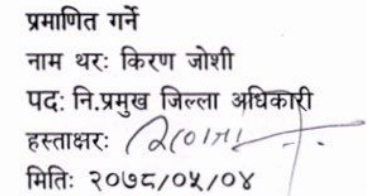 प्रमाणित गर्ने
नाम थरः किरण जोशी
पद: नि.प्रमुख जिल्ला अधिकारी
हस्ताक्षरः
मितिः २०७८/०५/०४